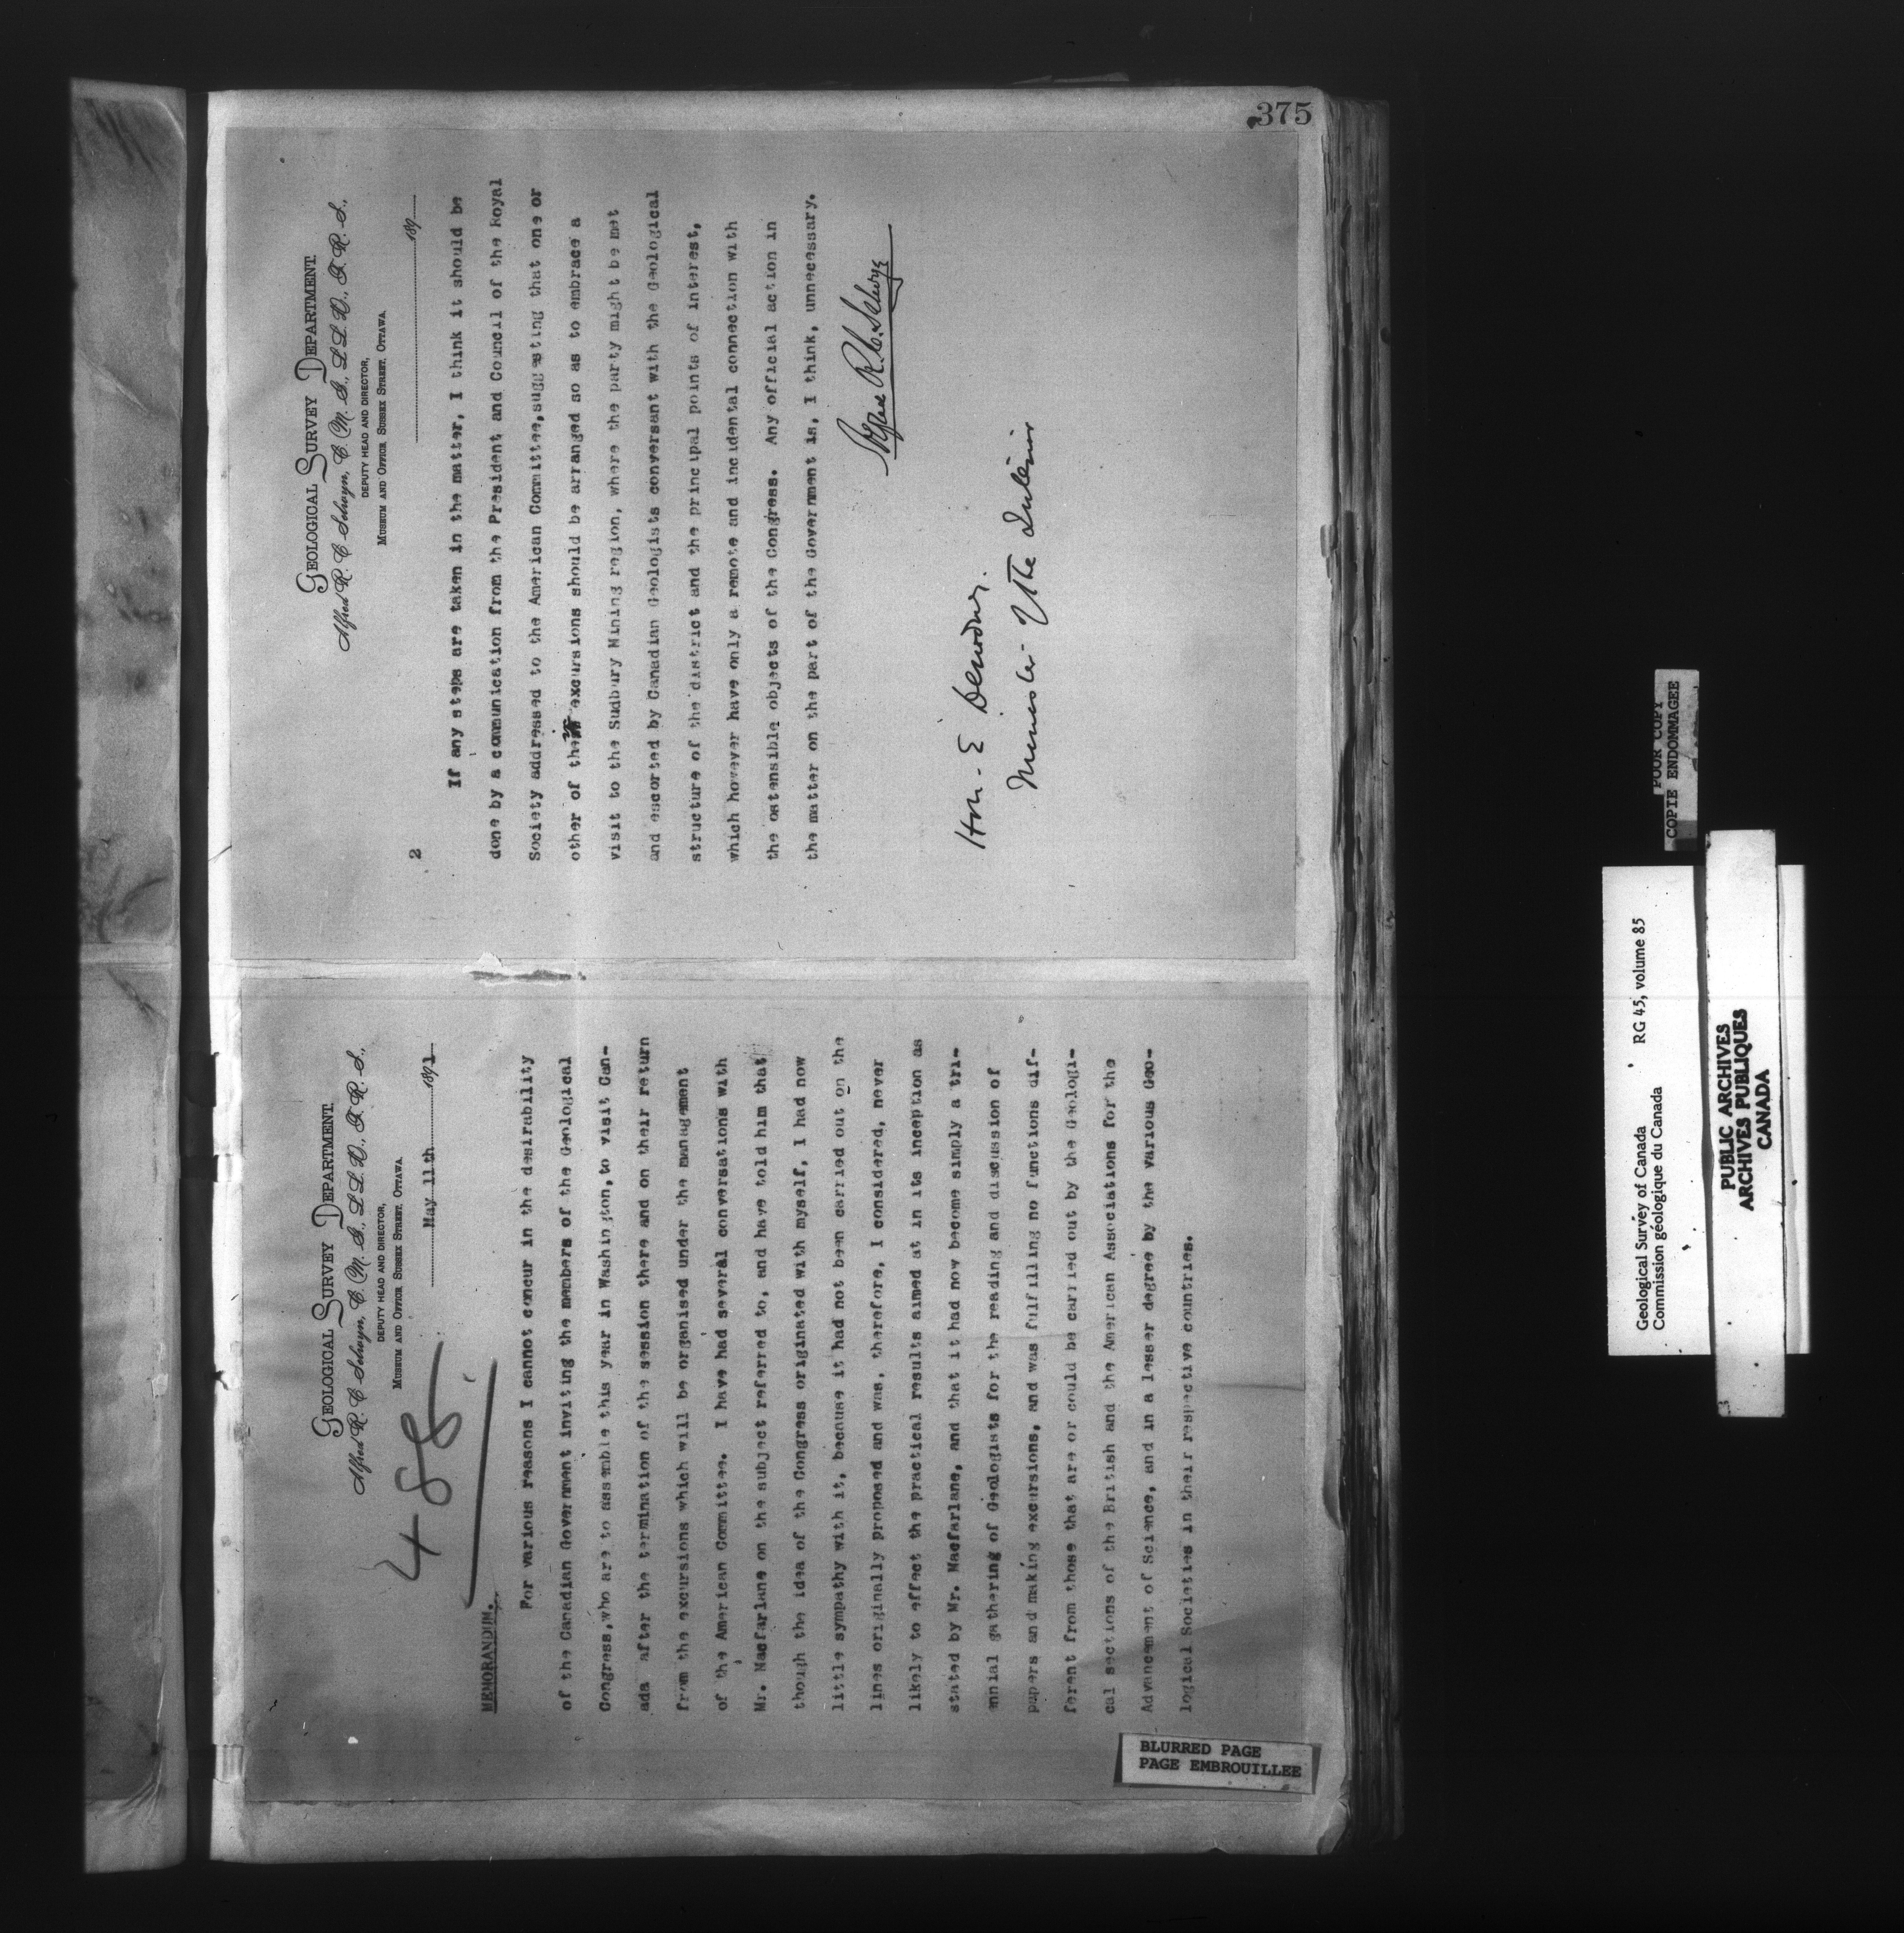 375
GEOLOGICAL SURVEY DEPARTMENT.
Alfred R. C. Selwyn, C. M. G., LL. D., F. R. S.,
DEPUTY HEAD AND DIRECTOR,
MUSEUM AND OFFICE SUSSEX STREET, OTTAWA.
May 11th 1891
488
MEMORANDUM.
For various reasons I cannot concur in the desirability
of the Canadian Government inviting the members of the Geological
Congress, who are to assemble this year in Washington, to visit Can-
ada after the termination of the session there and on their return
from the excursions which will be organised under the management
of the American Committee. I have had several conversations with
Mr. Macfarlane on the subject referred to, and have told him that
though the idea of the Congress originated with myself, I had now
little sympathy with it, because it had not been carried out on the
lines originally proposed and was, therefore, I considered, never
likely to effect the practical results aimed at in its inception as
stated by Mr. Macfarlane, and that it had now become simply a tri-
ennial gathering of Geologists for the reading and discussion of
papers and making excursions, and was fulfilling no functions dif-
ferent from those that are or could be carried out by the Geologi-
cal sections of the British and the American Associations for the
Advancement of Science, and in a lesser degree by the various Geo-
logical Societies in their respective countries.
BLURRED PAGE
PAGE EMBROUILLEE
GEOLOGICAL SURVEY DEPARTMENT.
Alfred R. C. Selwyn, C. M. G., LL. D., F. R. S.,
DEPUTY HEAD AND DIRECTOR,
MUSEUM AND OFFICE SUSSEX STREET, OTTAWA.
189
2
If any steps are taken in the matter, I think it should be
done by a communication from the President and Council of the Royal
Society addressed to the American Committee, suggesting that one or
other of the excursions should be arranged so as to embrace a
visit to the Sudbury Mining region, where the party might be met
and escorted by Canadian Geologists conversant with the Geological
structure of the district and the principal points of interest,
which however have only a remote and incidental connection with
the ostensible objects of the Congress. Any official action in
the matter on the part of the Government is, I think, unnecessary.
Alfred R. C. Selwyn
Hon. E Dewdney.
Minister of the Interior
POOR COPY
COPIE ENDOMMAGEE
Geological Survey of Canada RG 45, volume 85
Commission géologique du Canada
PUBLIC ARCHIVES
ARCHIVES PUBLIQUES
CANADA